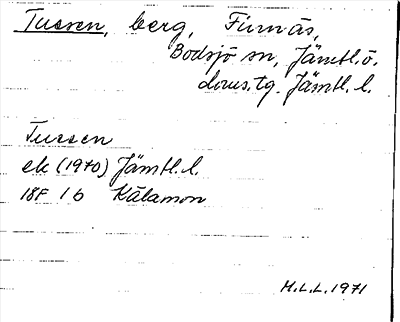 Tussen, berg, Finnås,
Bodsjö sn, Jämtl.ö.
doms.tg. Jämtl. l.
Tussen
ek (1970) Jämtl. l.
18F 1b Kälamon
H.L.L. 1971